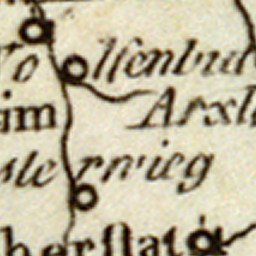 Wolfenbut
im Arxl
sterwieg
berstat